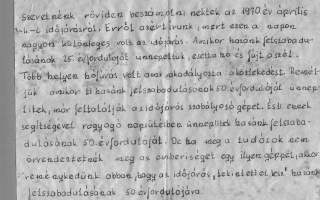 Szeretnénk röviden beszámolni nektek az 1970 év április
4-i időjárásról. Erről azért írunk, mert ezen a napon
nagyon különleges volt az időjárás. Amikor hazánk felszabadu-
lásának 25. évfordulóját ünnepeltük, esett a hó és fújt a szél.
Több helyen hófúvás volt ami akadályozta a közlekedést. Remél-
jük amikor ti hazánk felszabadulásának 50 évfordulóját ünnep-
litek, már feltalálják az időjárás szabályozó gépet. Esti ennek
segítségével ragyogó napsütésben ünneplitek hazánk felszaba-
dulásának 50 évfordulóját. De ha meg a tudósok nem
örvendeztetnék meg az emberiséget egy ilyen géppel, akkor
reménykedünk abban, hogy az időjárás „tekintettel lesz" hazánk
felszabadulásának 50 évfordulójára.